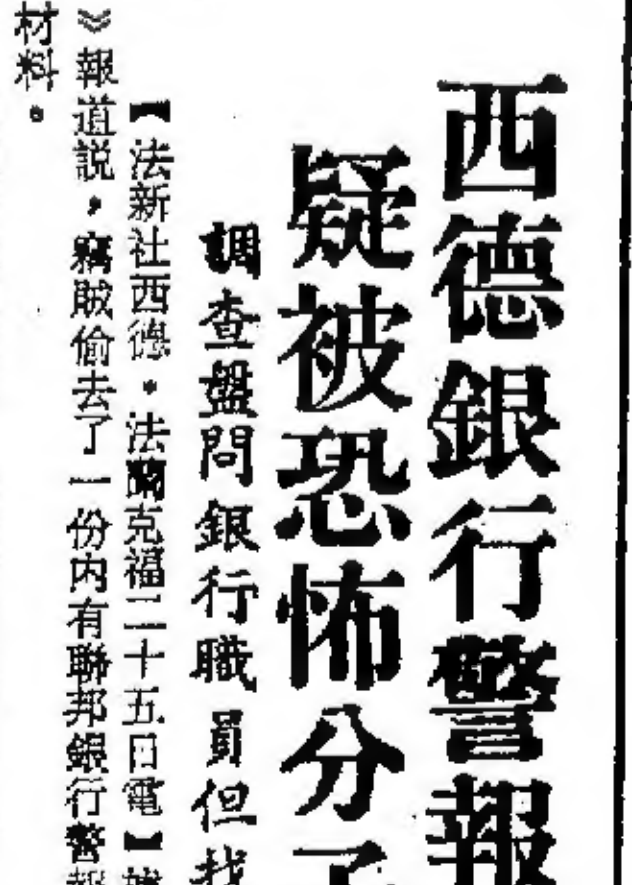 西德銀行警報
疑被恐怖分子
調查盤問銀行職員但找
【法新社西德•法蘭克福二十五日電】據
》報道説，竊賊偷去了一份内有聯邦銀行警報
材料。